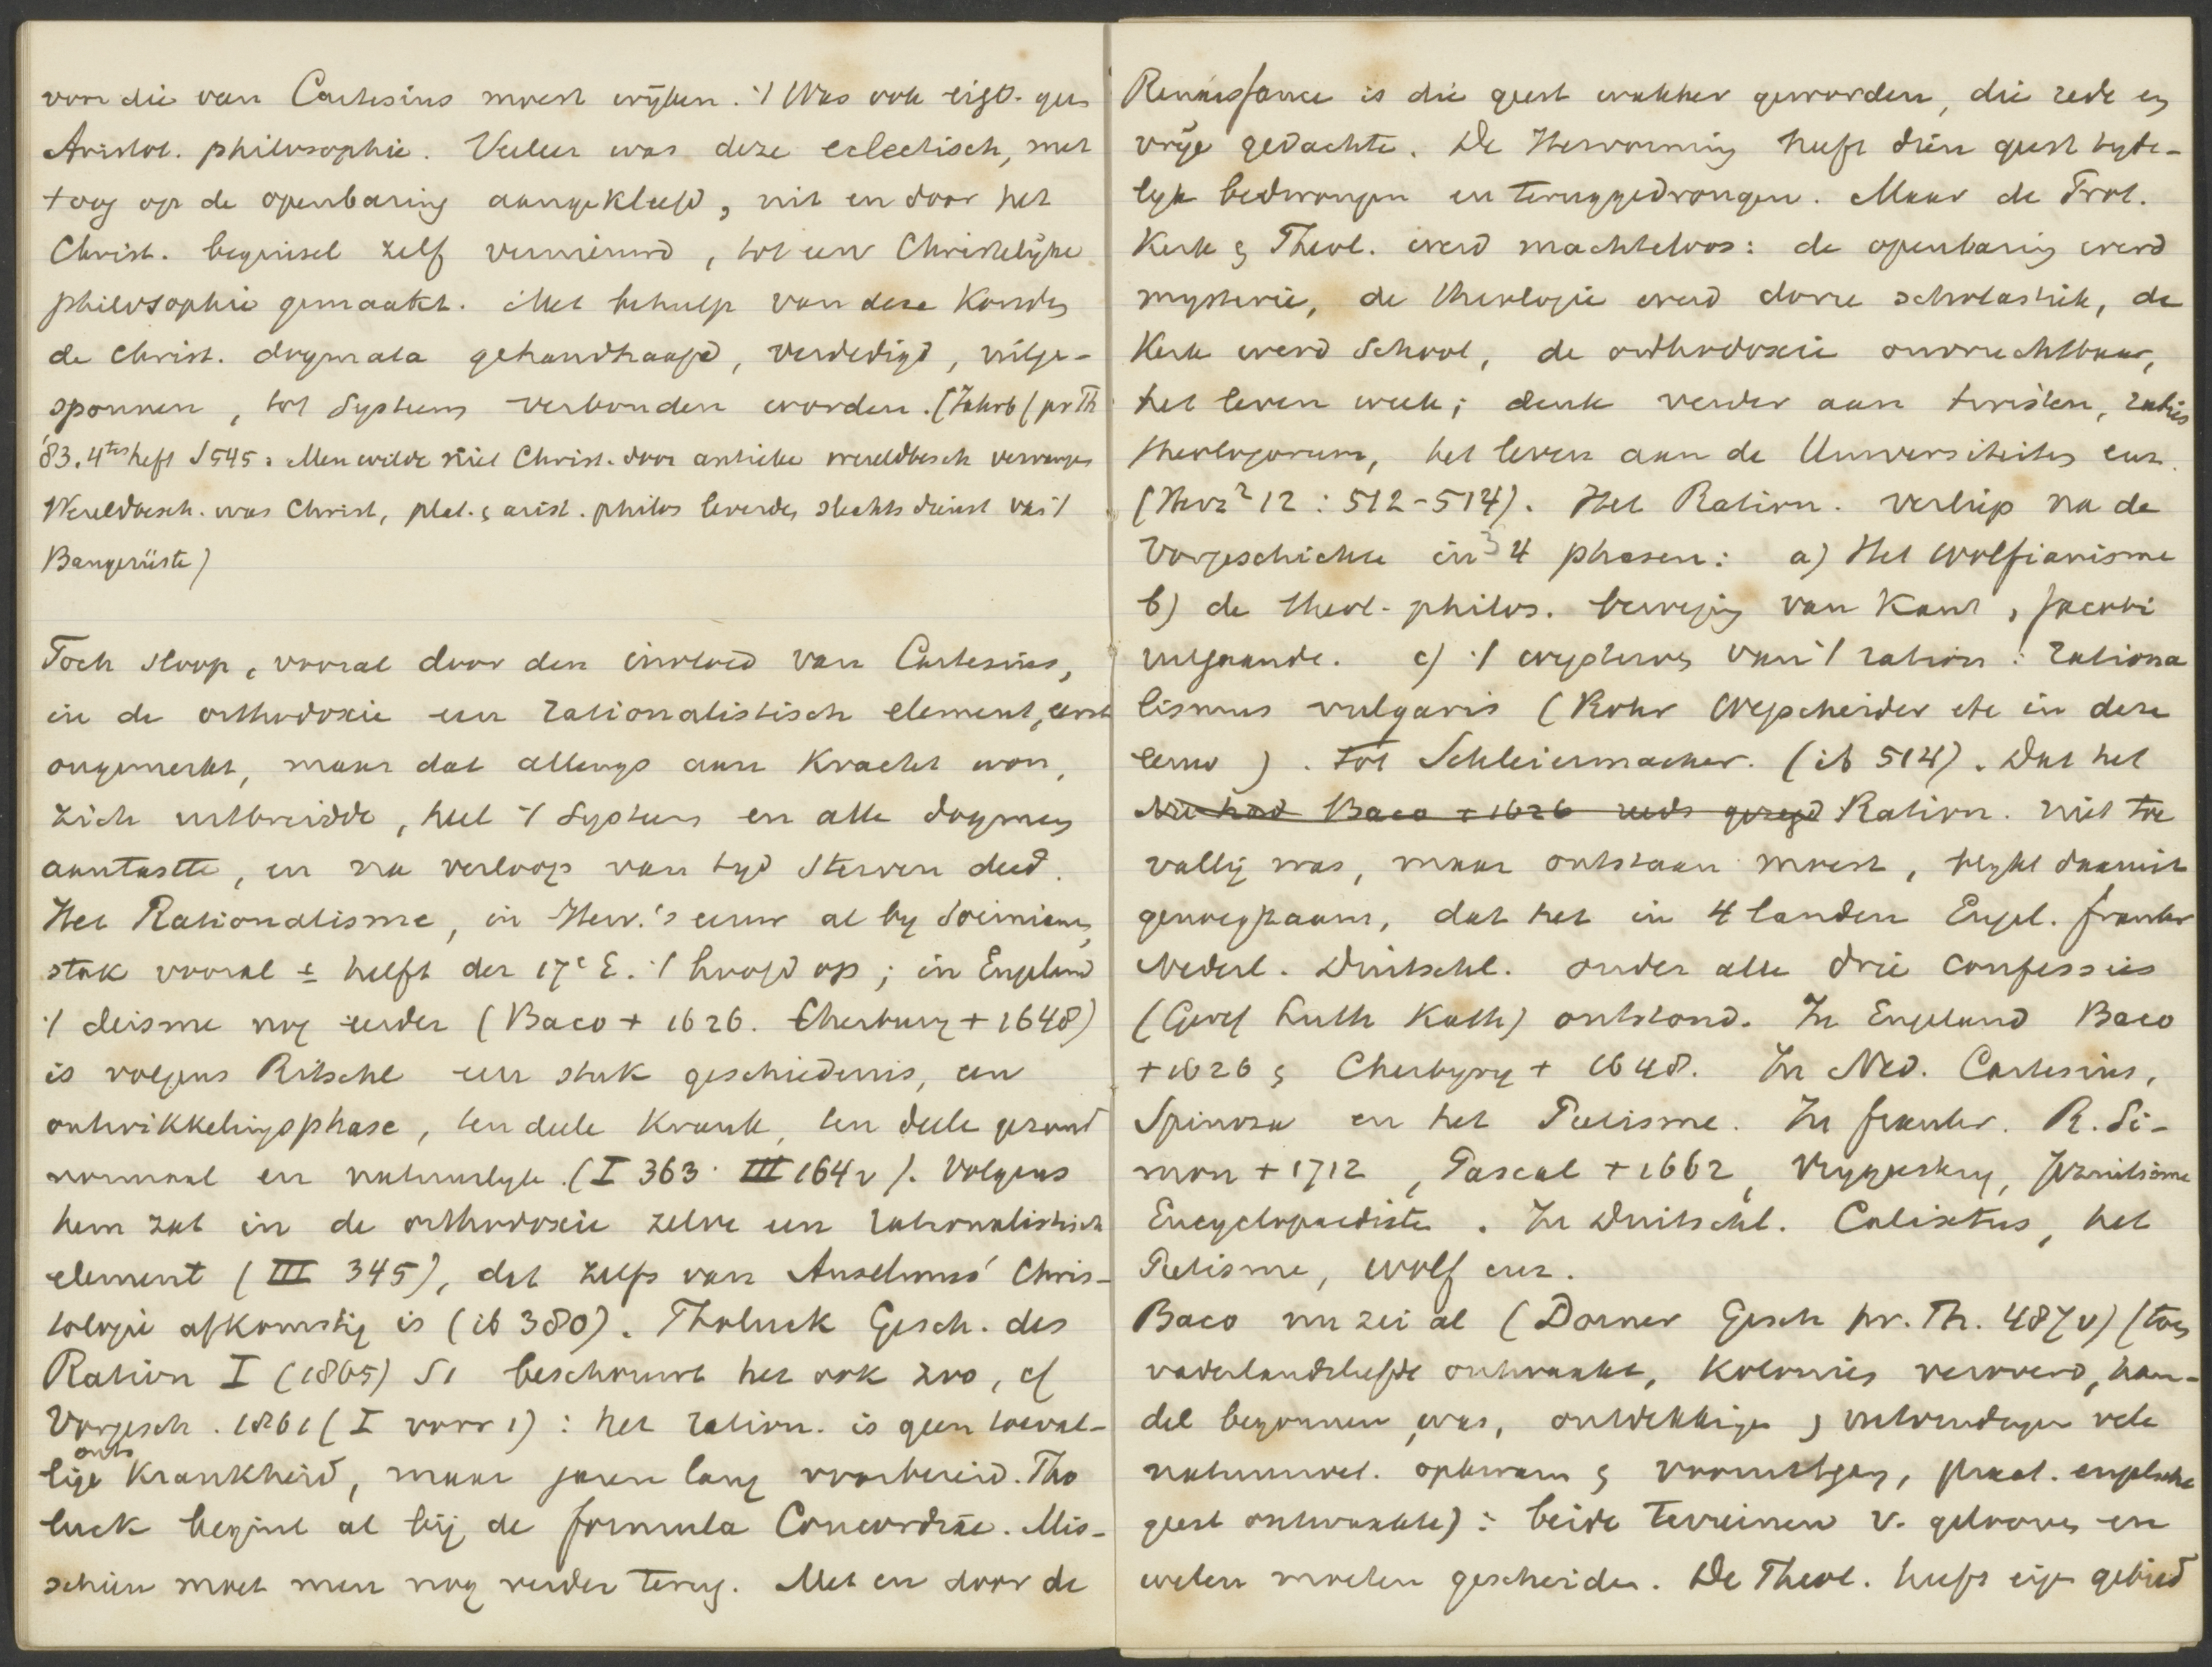 voor die van Cartesius moest wijken. 't Was ook eig. geen
Aristot. philosophie. Veeleer was deze eclectisch, met
+ oog op de openbaring aangekleefd, uit en door het
Christ. beginsel zelf vernieuwd, tot een Christelijke
philosophie gemaakt. Met behulp van deze konden
de Christ. dogmata gehandhaafd, verdedigd, uitge-
sponnen, tot Systeem verbonden worden. (Jahrb f pr Th
'83. 4tes heft S 545: Men wilde niet Christ. door antieke wereldbesch vervangen
Wereldbesch. was Christ, plat. & arist. philos leverden slechts dienst van 't
Baugerüste)
Toch sloop, vooral door den invloed van Cartesius,
in de orthodoxie een rationalistisch element, eerst
ongemerkt, maar dat allengs aan kracht won,
zich uitbreidde, heel 't Systeem en alle dogmen
aantastte, en na verloop van tyd sterven deed.
Het Rationalisme, in Herv.'s eeuw al by Socinianen,
stak vooral ± helft der 17e E. 't hoofd op; in Engeland
't deisme nog eerder (Baco + 1626. Cherbury + 1648)
is volgens Ritschl een stuk geschiedenis, een
ontwikkelingsphase, ten deele krank, ten deele gezond
normaal en natuurlyk (I 363. III 164v). Volgens
hem zat in de orthodoxie zelve een rationalistisch
element (III 345), dat zelfs van Anselmus' Chris-
tologie afkomstig is (ib 380). Tholuck Gesch. des
Ration I (1865) S1 beschouwt het ook zoo, cf
Vorgesch. 1861 (I voorr 1): het ration. is geen toeval-
lige krankheid, maar jaren lang voorbereid. Tho
luck begint al bij de formula Concordiae. Mis-
schien moet men nog verder terug. Met en door de
Renaissance is die geest wakker geworden, die rede en
vrije gedachte. De Hervorming heeft dien geest tyde-
lyk bedwongen en teruggedrongen. Maar de Prot.
Kerk & Theol. werd machteloos: de openbaring werd
mysterie, de theologie werd dorre scholastiek, de
Kerk werd School, de orthodoxie onvruchtbaar,
het leven week; denk verder aan twisten, rabies
theologorum, het leven aan de Universiteiten enz.
(Herz² 12: 512-514). Het Ration. verliep na de
Vorgeschichte in 3 4 phasen: a) Het Wolfianisme
b) de theol-philos. beweging van Kant, Jacobi
uitgaande. c) 't van 't ration: rationa
lismus vulgaris (Rohr Wegscheider etc in deze
eeuw). tot Schleiermacher. (ib 514). Dat het
Nu had Baco + 1626 reeds gezegd Ration. niet toe
vallig was, maar ontstaan moest, blykt daaruit
genoegzaam, dat het in 4 landen Engel. frankr
Nederl. Duitschl. onder alle drie confessies
(Geref Luth Kath) ontstond. In Engeland Baco
+ 1626 & Cherbury + 1648. In Ned. Cartesius,
Spinoza en het Pietisme. In frankr. R. Si-
mon + 1712, Pascal + 1662, Jezuitisme
Encyclopaedisten. In Duitschl. Calixtus, het
Pietisme, Wolf enz.
Baco nu zei al (Dorner Gesch pr. Th. 487v) (toen
vaderlandsliefde ontwaakt, Kolonies veroverd, han-
del begonnen was, ontdekkingen & uitvindingen vele
natuurwet. opkwam & vooruitging, pract. engelsche
geest ontwaakte): beide terreinen v. gelooven en
weten moeten gescheiden. De Theol. heeft eigen gebied